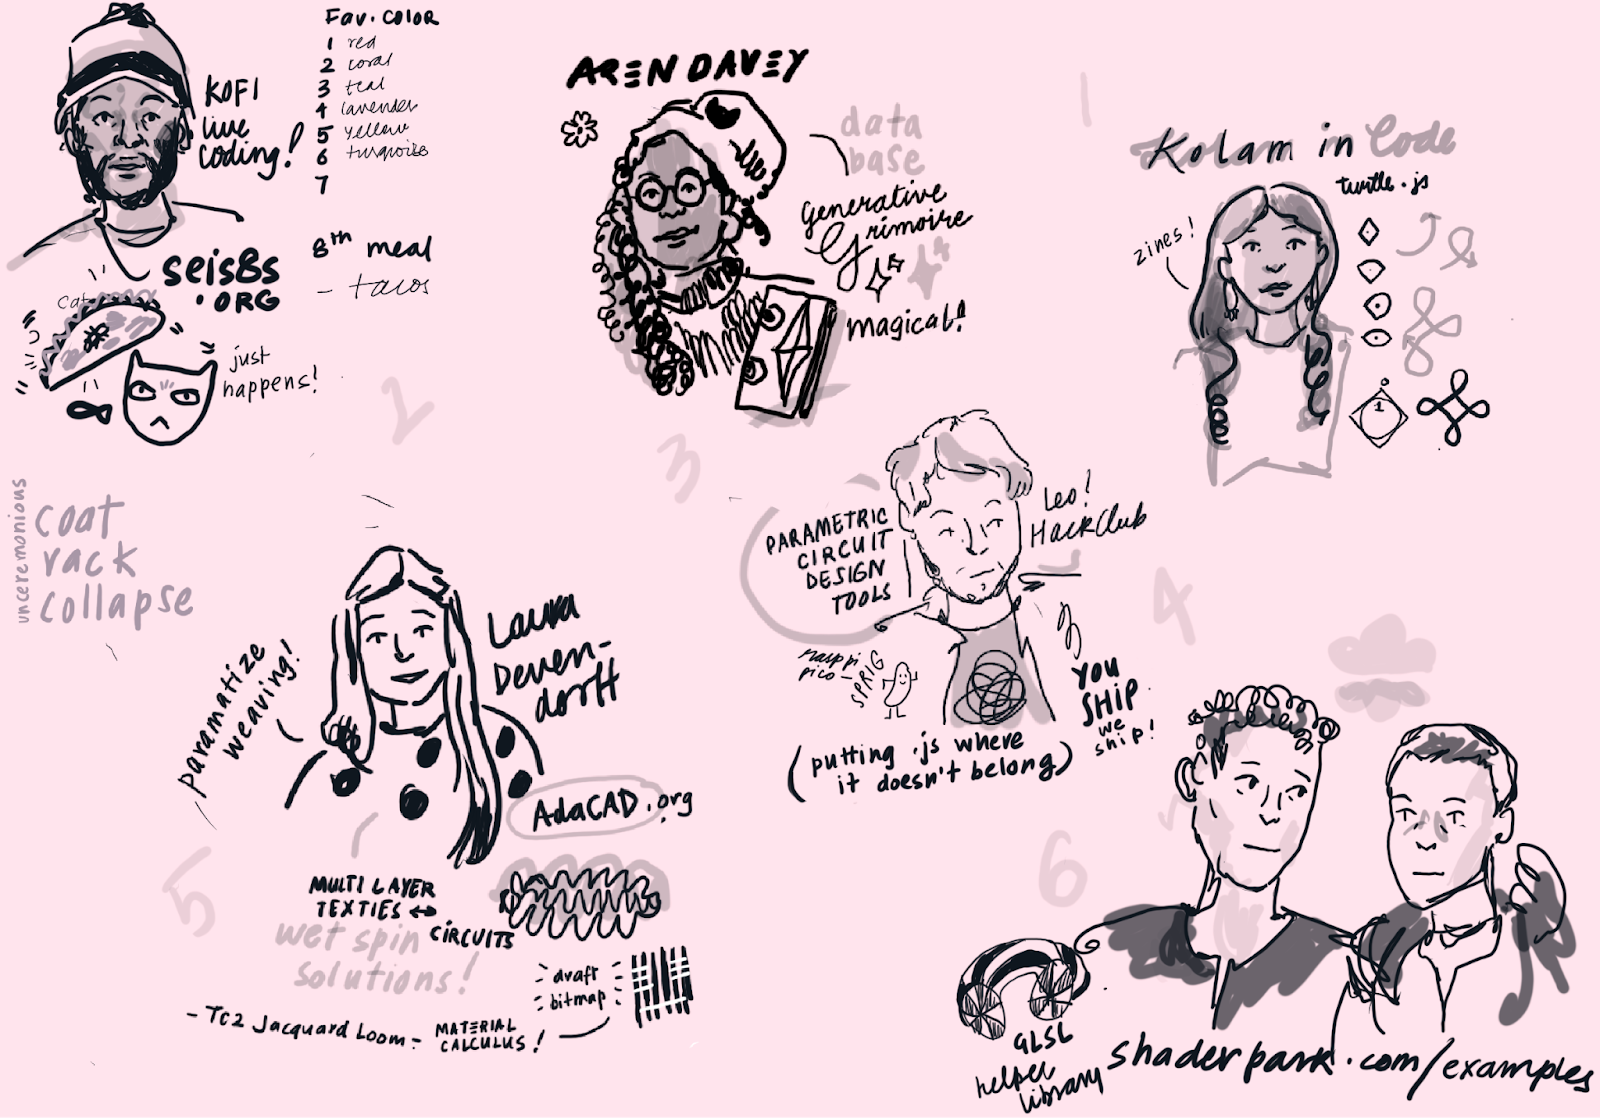 Fav. COLOR
1 red
2 coral
3 teal
4 lavender
5 yellow
6 turquoise
7
8th meal
- tacos
KOFI
live
coding!
seis8s
.ORG
cat
just
happens!
2
AREN DAVEY
data
base
generative
Grimoire
magical!
3
1
Kolam in Code
turtle.js
zines!
1
unceremonious
coat
rack
collapse
PARAMETRIC
CIRCUIT
DESIGN
TOOLS
Leo!
HackClub
SPRIG
YOU
SHIP
we
ship!
(putting .js where
it doesn't belong)
4
paramatize
weaving!
Laura
Deven-
dorff
AdaCAD.org
5
MULTI LAYER
TEXTIES ↔
CIRCUITS
wet spin
solutions!
draft
bitmap
- TC2 Jacquard Loom - MATERIAL
CALCULUS!
6
GLSL
helper
library
shaderpark.com/examples